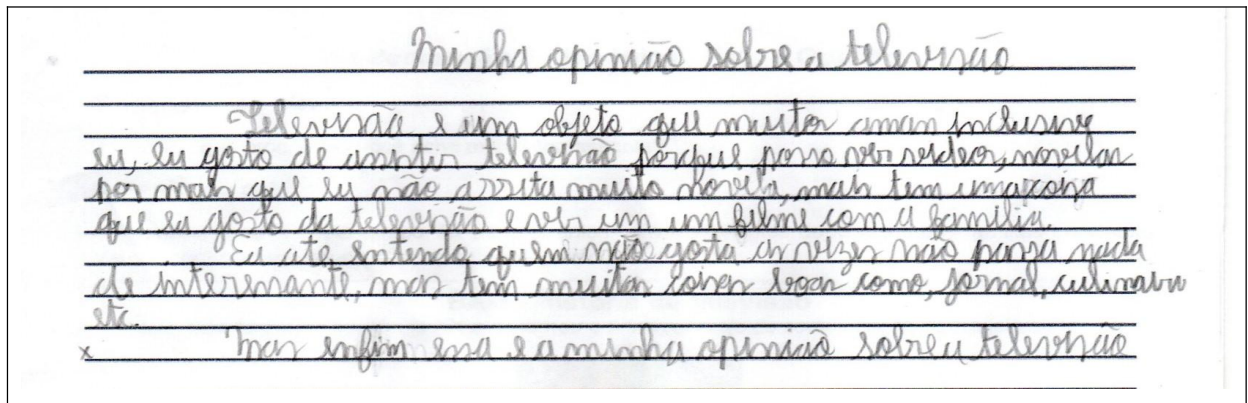 Minha opinião sobre a televisão
Televisão e um objeto que muitos aman inclusive
eu, eu gosto de assistir televisão porque posso ver videos, novelas
por mais que eu não assita muito novela, mais tem uma coisa
que eu gosto da televisão e ver um um filme com a família.
Eu ate entendo quem não gosta as vezes não passa nada
de interessante, mas tem muitas coisas boas como, jornal, culinaria
etc.
x Mas enfim essa e a minha opinião sobre a televisão